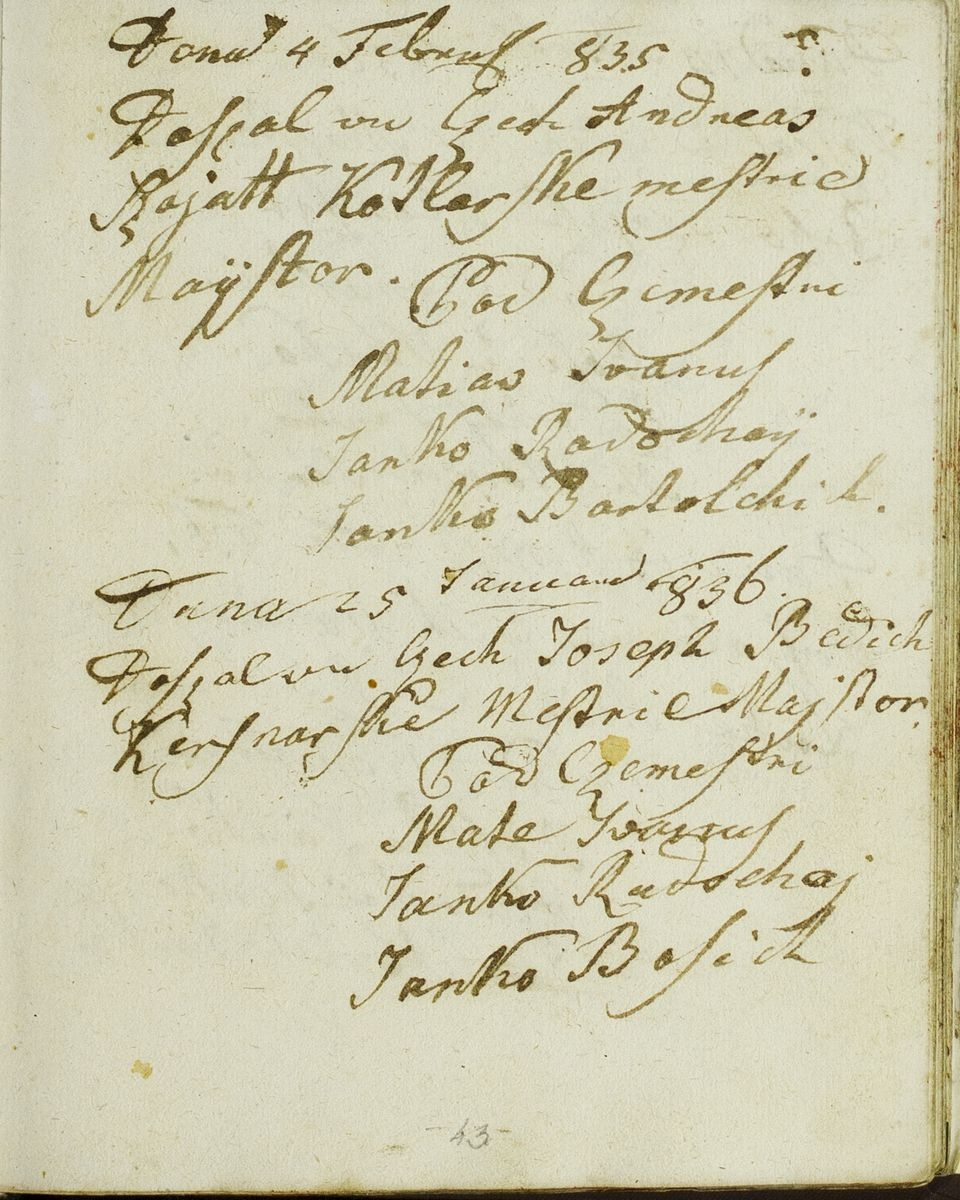 Dona 4 Februs 835
Doſzal vu Czeh Andreas
Kotlarſke meſtrie
Maÿſtor. Pod Czemeſtri
Matias Ivanuſ
Janko Radochaÿ
Janko Bartolchich.
Dana 25 Januara 836.
Doſzal vu Czech Joseph Bedich
Kerſnarſke Meſtrie Majſtor.
Pod Czemeſtri
Mate Ivanuſ
Janko Radochaj
Janko Boſich
43